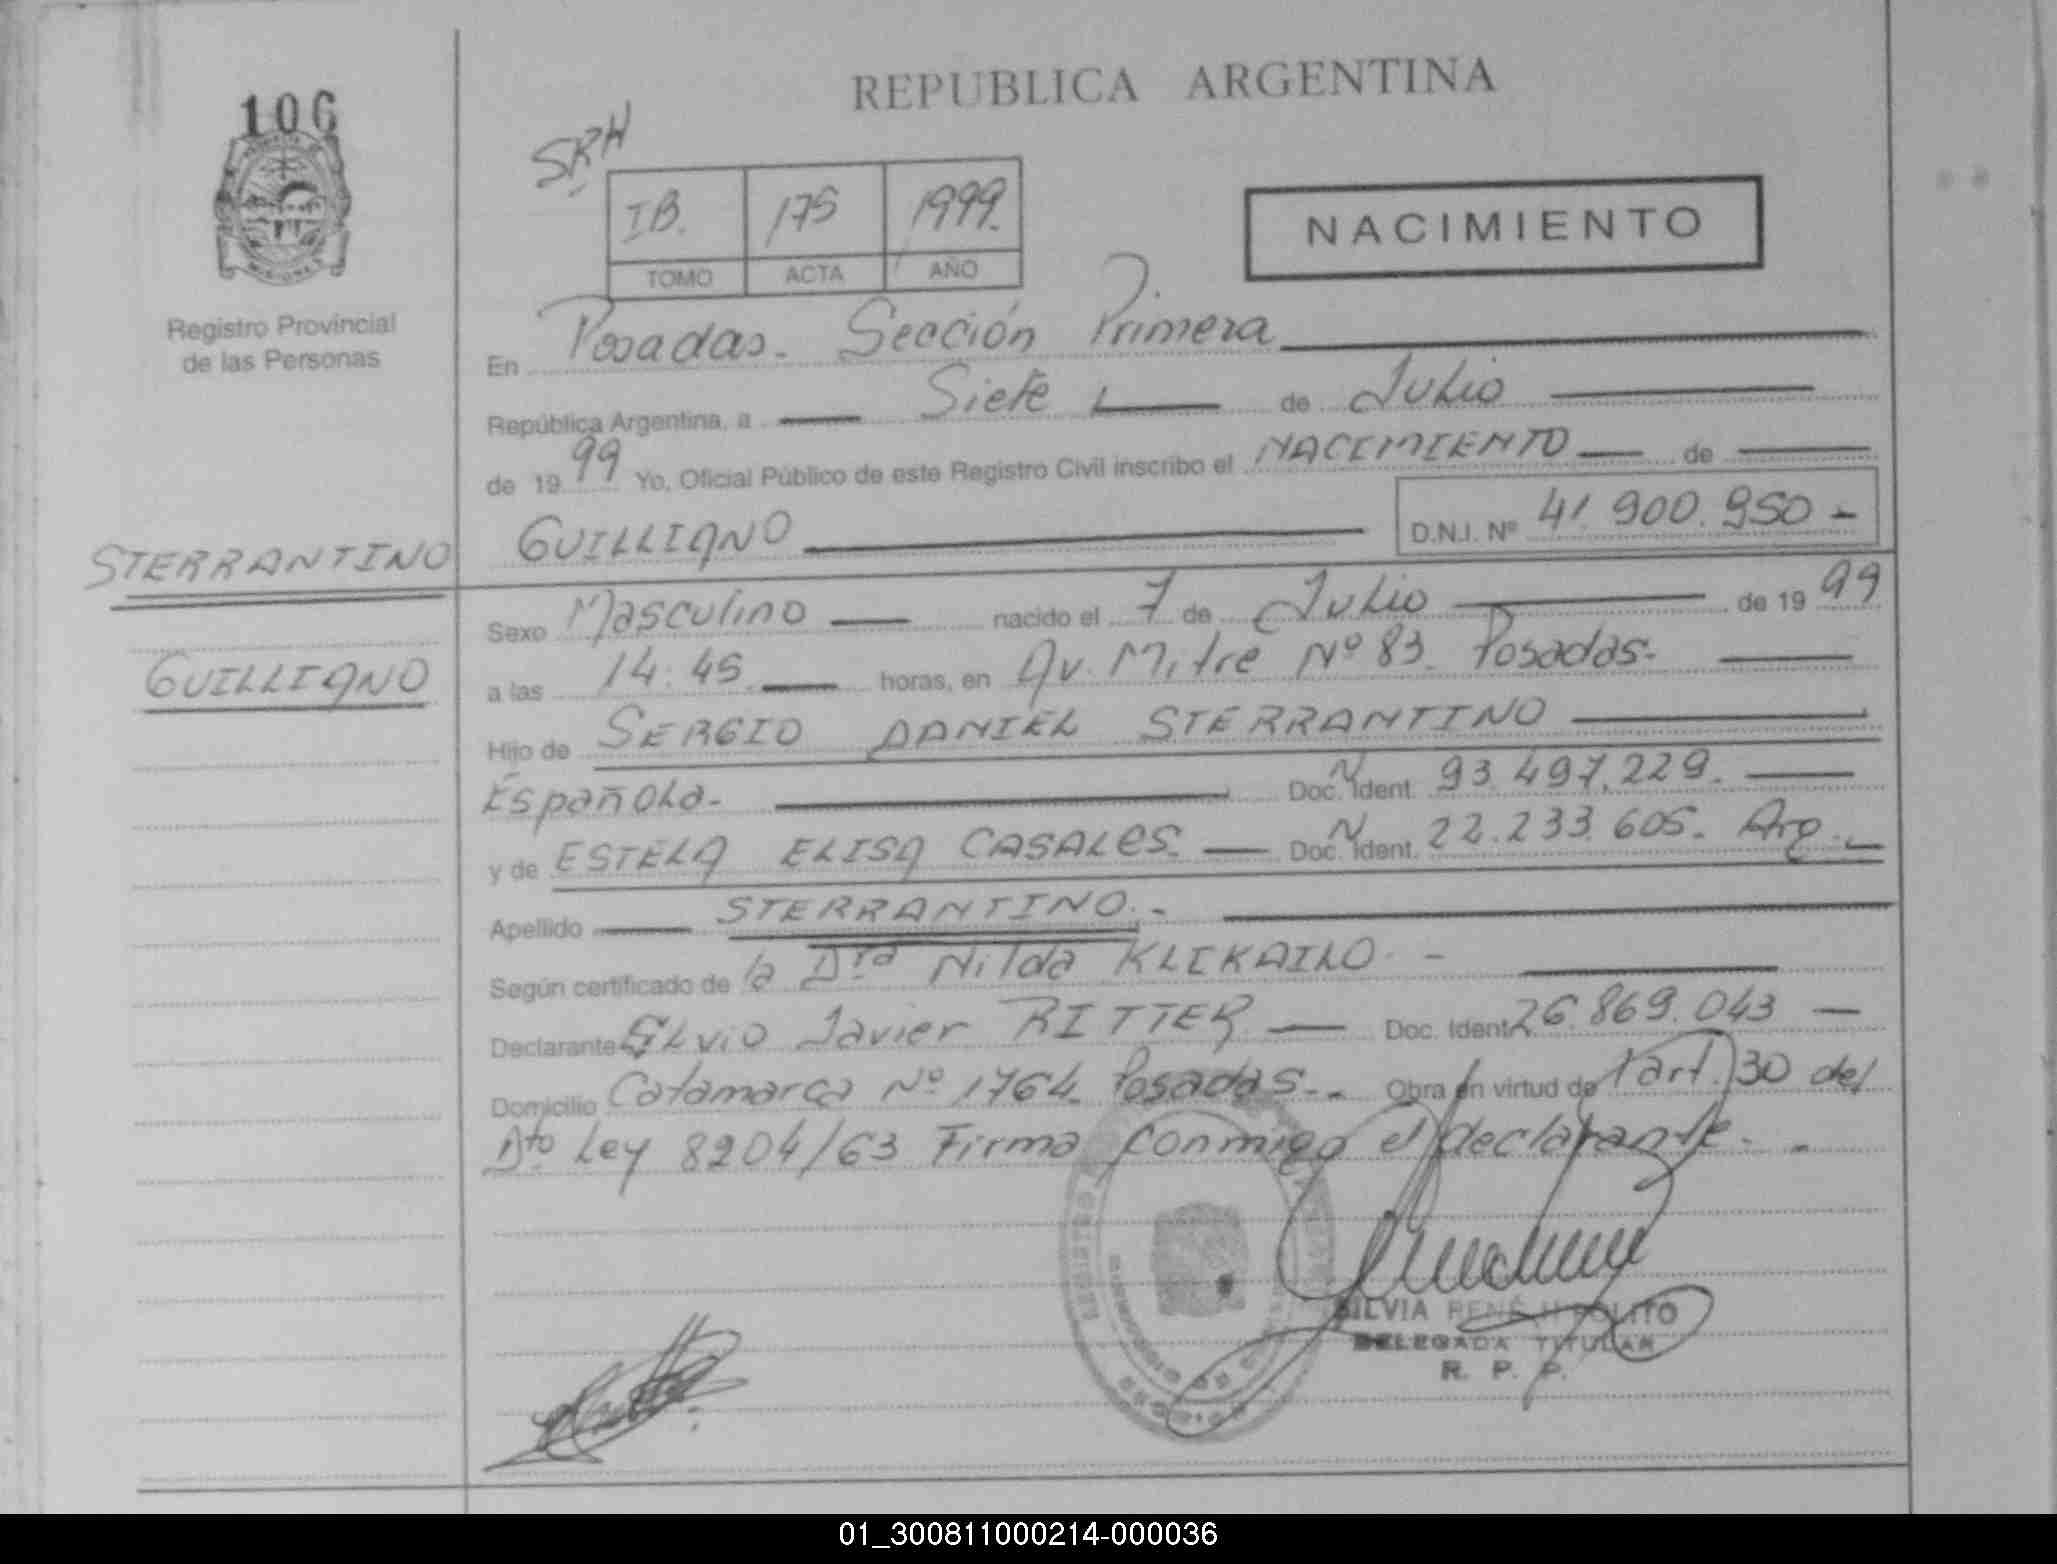 106
REPUBLICA ARGENTINA
SRH
IB. 175 1999.
TOMO ACTA AÑO
NACIMIENTO
Registro Provincial
de las Personas
En Posadas. Sección Primera
República Argentina, a Siete de Julio
de 1999 Yo, Oficial Público de este Registro Civil inscribo el NACIMIENTO de
GUILLIANO D.N.I. Nº 41.900.950-
STERRANTINO
GUILLIANO
Sexo Masculino nacido el 7 de Julio de 1999
a las 14:45 horas, en Av. Mitre Nº 83. Posadas.
Hijo de SERGIO DANIEL STERRANTINO
Española. Doc. N Ident. 93.497.229.
y de ESTELA ELISA CASALES. Doc. N Ident. 22.233.605. Arg.
Apellido STERRANTINO.-
Según certificado de la Dra Nilda KLEKAILO.-
Declarante Elvio Javier RITTER Doc. Ident 26.869.043
Domicilio Catamarca Nº 1764. Posadas.- Obra en virtud de l'art. 30 del
Dto Ley 8204/63 Firma conmigo el declarante.-
SILVIA RENÉ HIPOLITO
DELEGADA TITULAR
R. P. P.
01_300811000214-000036